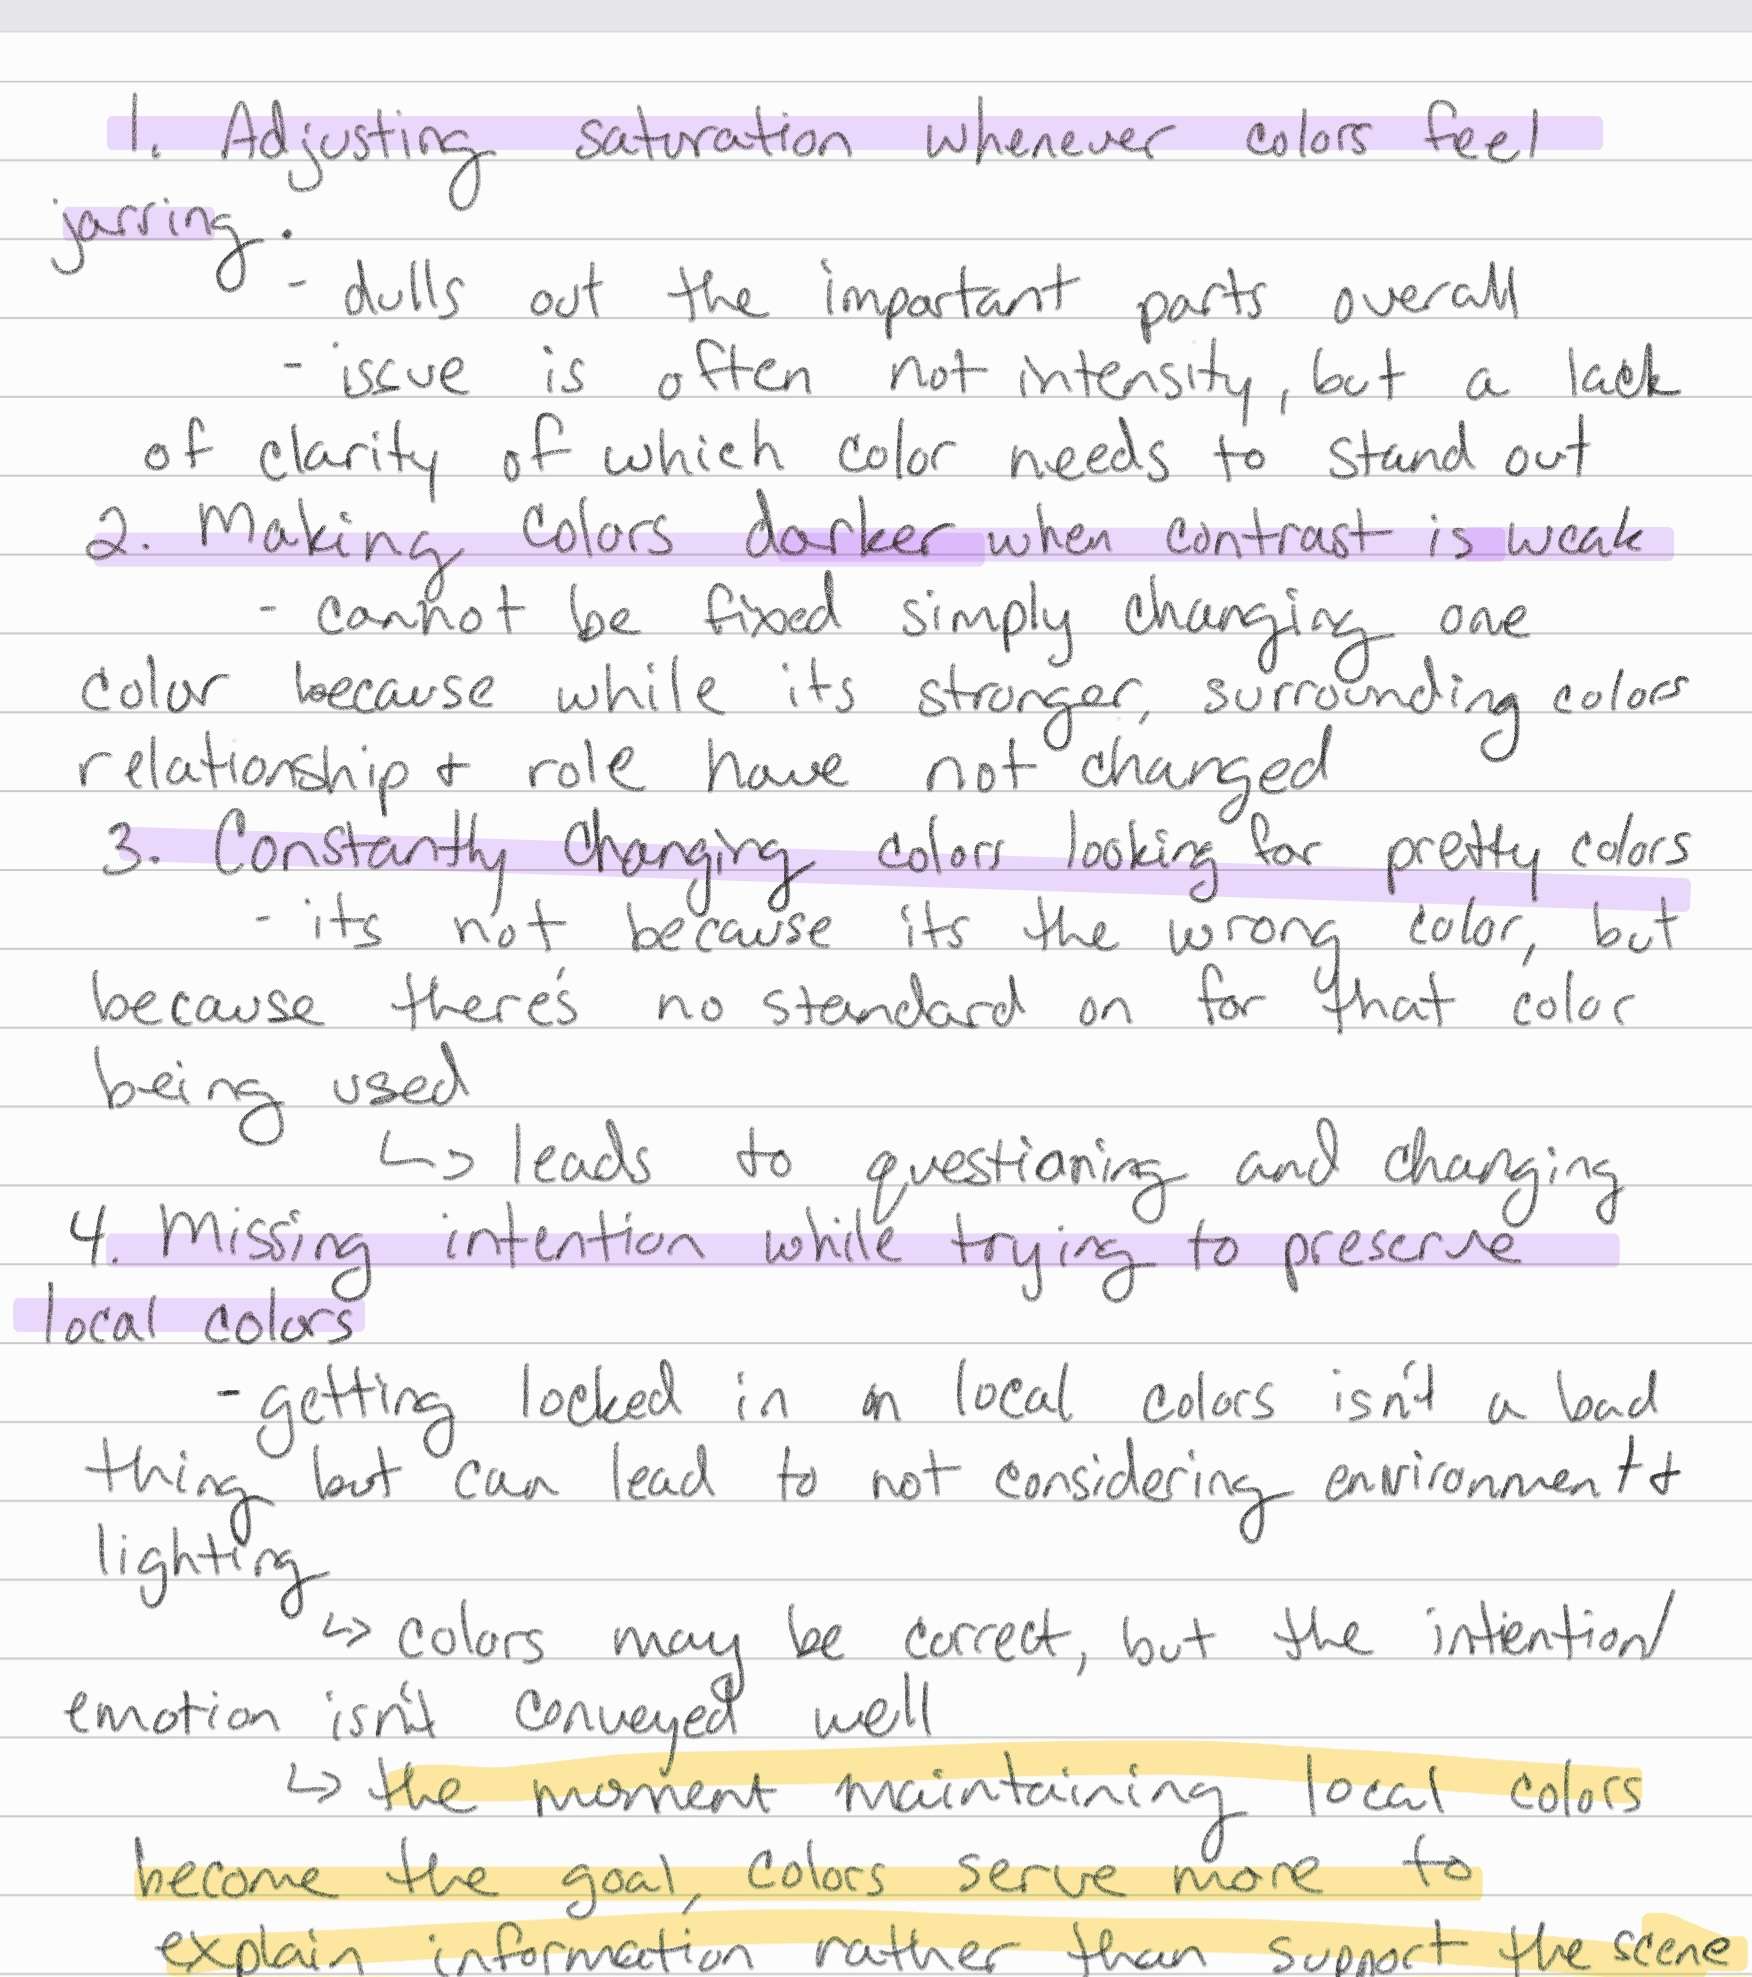 1. Adjusting saturation whenever colors feel
jarring.
- dulls out the important parts overall
- issue is often not intensity, but a lack
of clarity of which color needs to stand out
2. Making colors darker when contrast is weak
- cannot be fixed simply changing one
color because while its stronger, surrounding colors
relationship + role have not changed
3. Constantly changing colors looking for pretty colors
- its not because its the wrong color, but
because there's no standard on for that color
being used
↳ leads to questioning and changing
4. Missing intention while trying to preserve
local colors
- getting locked in on local colors isn't a bad
thing but can lead to not considering environment +
lighting
↳ colors may be correct, but the intention/
emotion isn't conveyed well
↳ the moment maintaining local colors
become the goal, colors serve more to
explain information rather than support the scene